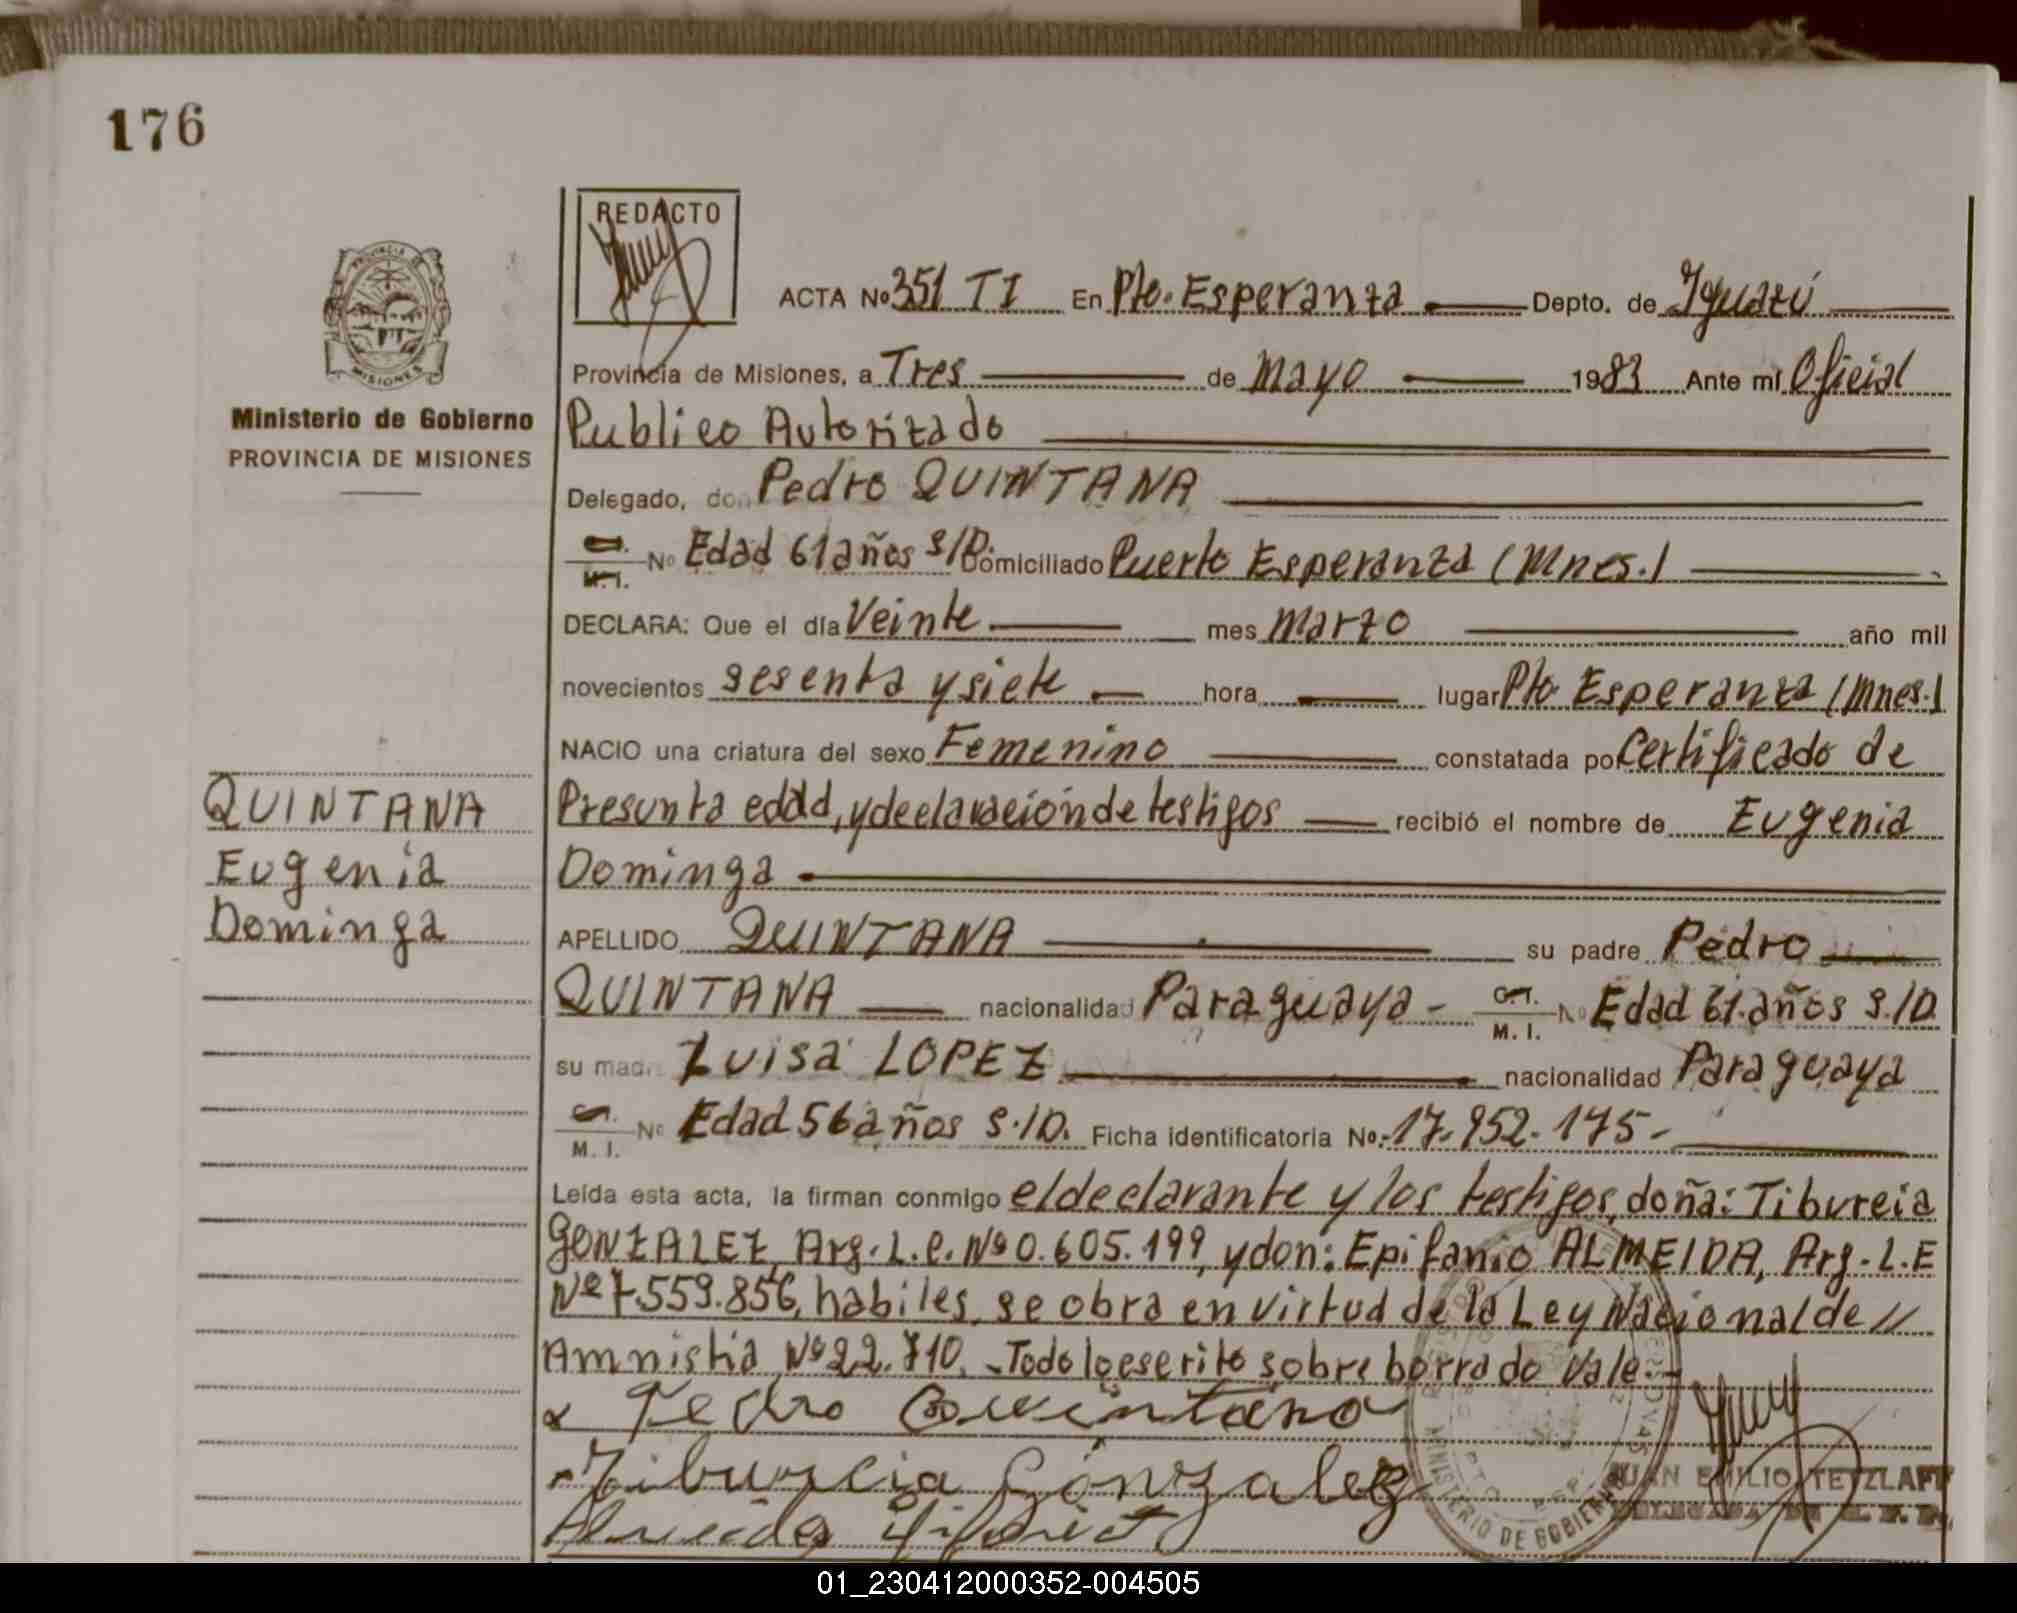 176
REDACTO
ACTA Nº 351 TI En Pto. Esperanza Depto. de Iguazú
Provincia de Misiones, a Tres de Mayo 1983 Ante mí Oficial
Ministerio de Gobierno
PROVINCIA DE MISIONES
Publico Autorizado
Delegado, don Pedro QUINTANA
Nº Edad 61 años S/D. Domiciliado Puerto Esperanza (Mnes.)
M. I.
DECLARA: Que el día Veinte mes Marzo año mil
novecientos sesenta y siete hora lugar Pto Esperanza (Mnes.)
NACIO una criatura del sexo Femenino constatada por Certificado de
Presunta edad, y declaración de testigos recibió el nombre de Eugenia
Dominga
QUINTANA
Eugenia
Dominga
APELLIDO QUINTANA su padre Pedro
QUINTANA nacionalidad Paraguaya - C.I. Nº Edad 61 años S./D.
M. I.
su madre Luisa LOPEZ nacionalidad Paraguaya
Nº Edad 56 años S./D. Ficha identificatoria No.- 17.952.175-
M. I.
Leída esta acta, la firman conmigo el declarante y los testigos, doña: Tiburcia
GONZALEZ, Arg. L.C. Nº 0.605.199, y don: Epifanio ALMEIDA, Arg. L.E
Nº 7.559.856, habiles, se obra en virtud de la Ley Nacional de //
Amnistia Nº 22.710. - Todo lo escrito sobre borrado Vale.-
Pedro Quintana
Tiburcia Gonzalez
JUAN EMILIO TETZLAFF
MINISTERIO DE GOBIERNO
01_230412000352-004505